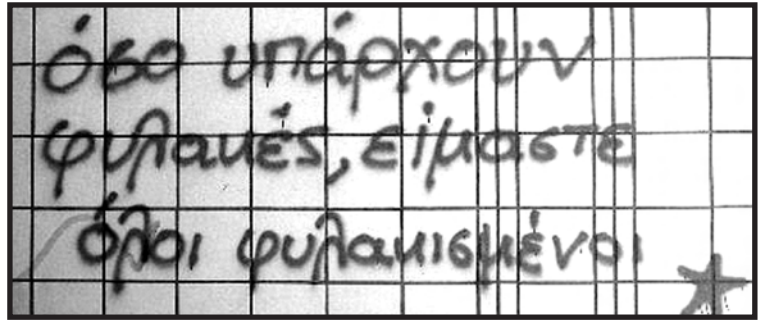 όσο υπάρχουν
φυλακές, είμαστε
όλοι φυλακισμένοι